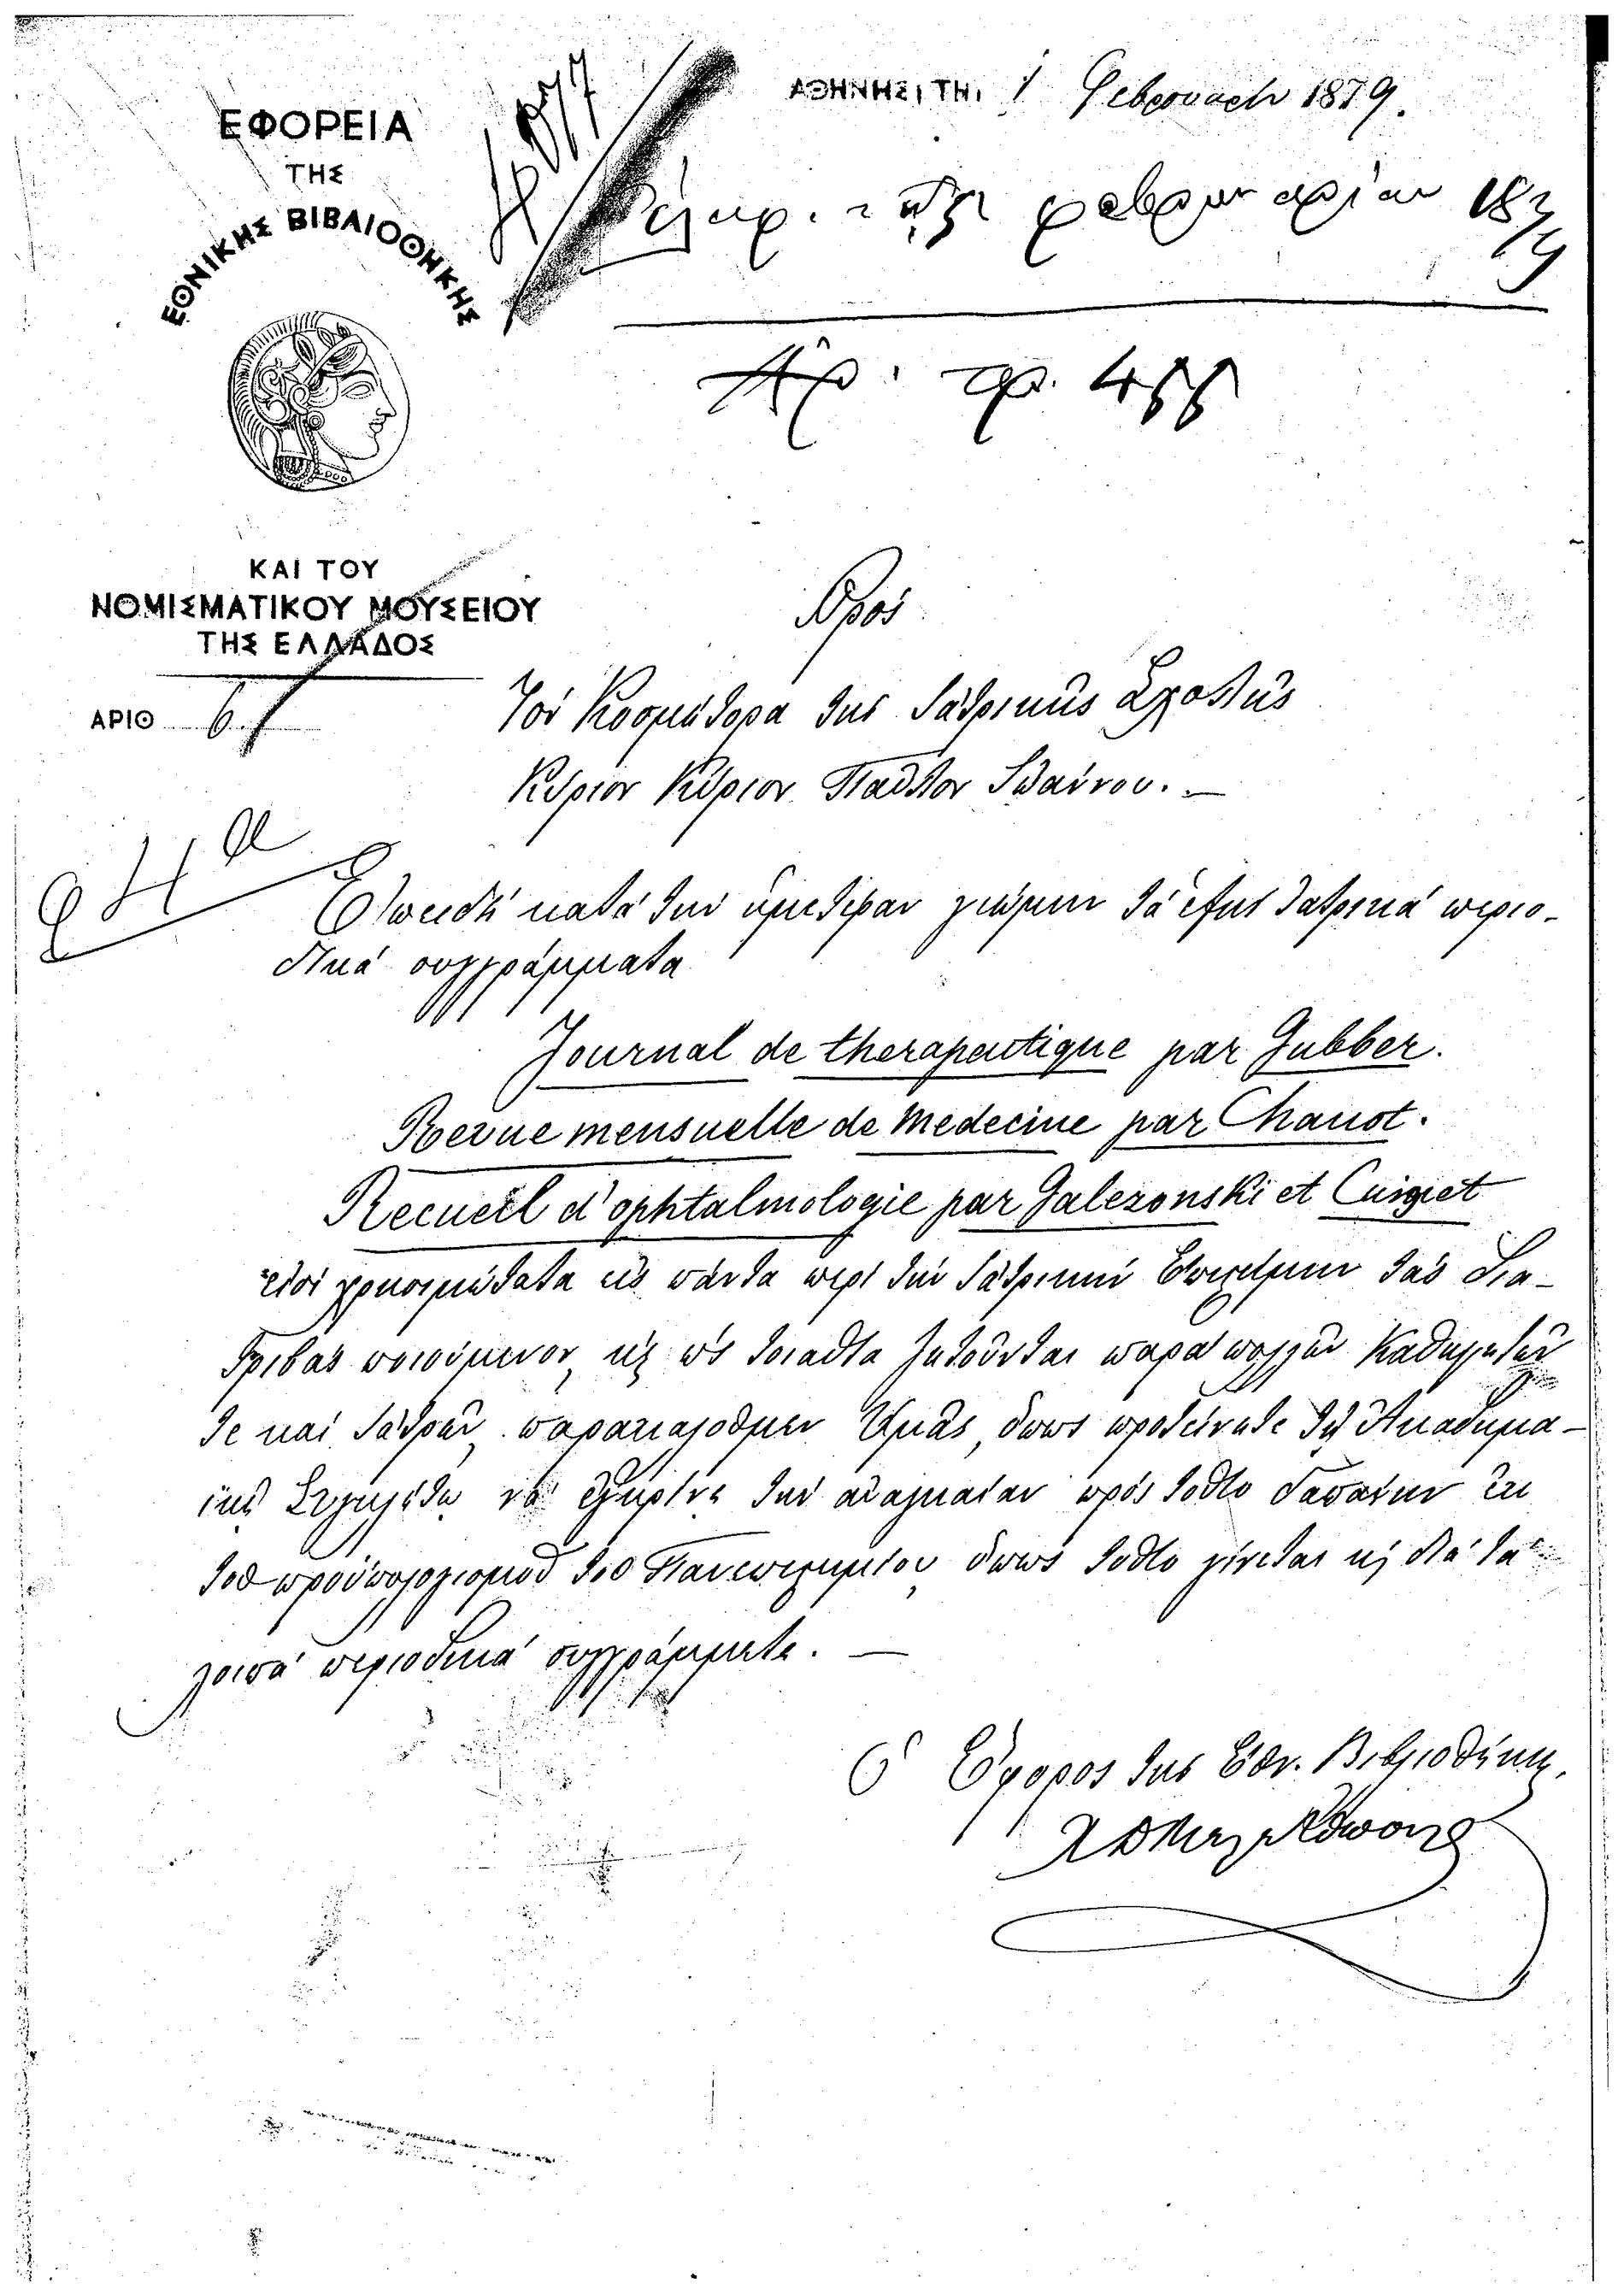 ΕΦΟΡΕΙΑ
ΤΗΣ
ΕΘΝΙΚΗΣ ΒΙΒΛΙΟΘΗΚΗΣ
ΚΑΙ ΤΟΥ
ΝΟΜΙΣΜΑΤΙΚΟΥ ΜΟΥΣΕΙΟΥ
ΤΗΣ ΕΛΛΑΔΟΣ
ΑΡΙΘ 6.
ΑΘΗΝΗΣΙ, ΤΗι 1 Φεβρουαρίου 1879.
φεβρουαρίου 1879
Ἀρ. πρ.
Πρὸς
Τὸν Κοσμήτορα τῆς Ἰατρικῆς Σχολῆς
Κύριον Κύριον Παῦλον Ἰωάννου. —
Ἐπειδὴ κατὰ τὴν ὑμετέραν γνώμην τὰ ἑξῆς ἰατρικὰ περιο-
δικὰ συγγράμματα
Journal de therapeutique par Gubber.
Revue mensuelle de Medecine par Chauot.
Recueil d'ophtalmologie par Galezonski et Cuignet
εἰσὶ χρησιμώτατα εἰς πάντα περὶ τὴν Ἰατρικὴν Ἐπιστήμην τὰς δια-
τριβὰς ποιούμενον, καὶ ὡς τοιαῦτα ζητοῦνται παρὰ πολλῶν Καθηγητῶν
τε καὶ Ἰατρῶν, παρακαλοῦμεν Ὑμᾶς, ὅπως προτείνητε τῇ Ἀκαδημα-
ϊκῇ Συγκλήτῳ νὰ ἐγκρίνῃ τὴν ἀναγκαίαν πρὸς τοῦτο δαπάνην ἐκ
τοῦ προϋπολογισμοῦ τοῦ Πανεπιστημίου, ὅπως τοῦτο γίνεται καὶ διὰ τὰ
λοιπὰ περιοδικὰ συγγράμματα. —
Ὁ Ἔφορος τῆς Ἐθν. Βιβλιοθήκης